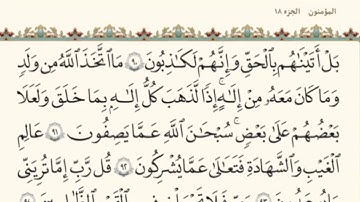 المؤمنون الجزء ١٨
بَلْ أَتَيْنَٰهُم بِالْحَقِّ وَإِنَّهُمْ لَكَٰذِبُونَ ۝٩٠ مَا اتَّخَذَ اللَّهُ مِن وَلَدٍ
وَمَا كَانَ مَعَهُ مِنْ إِلَٰهٍ ۚ إِذًا لَّذَهَبَ كُلُّ إِلَٰهٍ بِمَا خَلَقَ وَلَعَلَا
بَعْضُهُمْ عَلَىٰ بَعْضٍ ۚ سُبْحَٰنَ اللَّهِ عَمَّا يَصِفُونَ ۝٩١ عَٰلِمِ
الْغَيْبِ وَالشَّهَٰدَةِ فَتَعَٰلَىٰ عَمَّا يُشْرِكُونَ ۝٩٢ قُل رَّبِّ إِمَّا تُرِيَنِّي